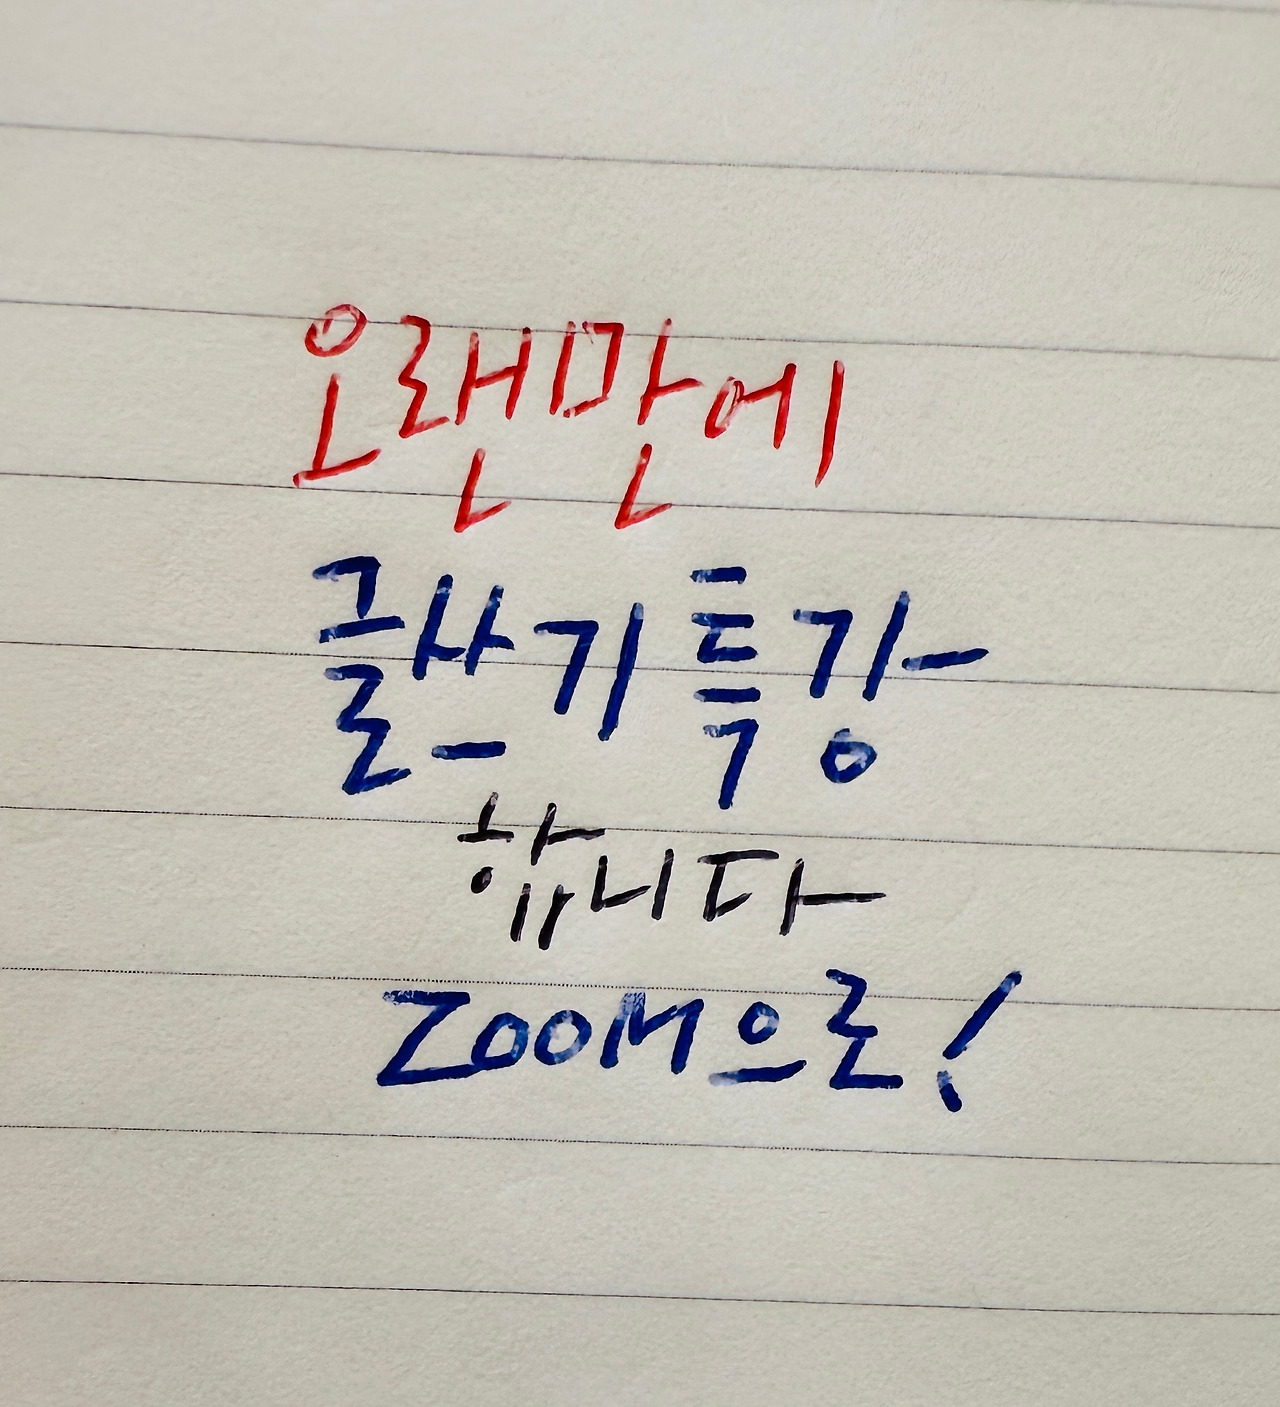 오랜만에
글쓰기 특강
합니다
ZOOM으로!